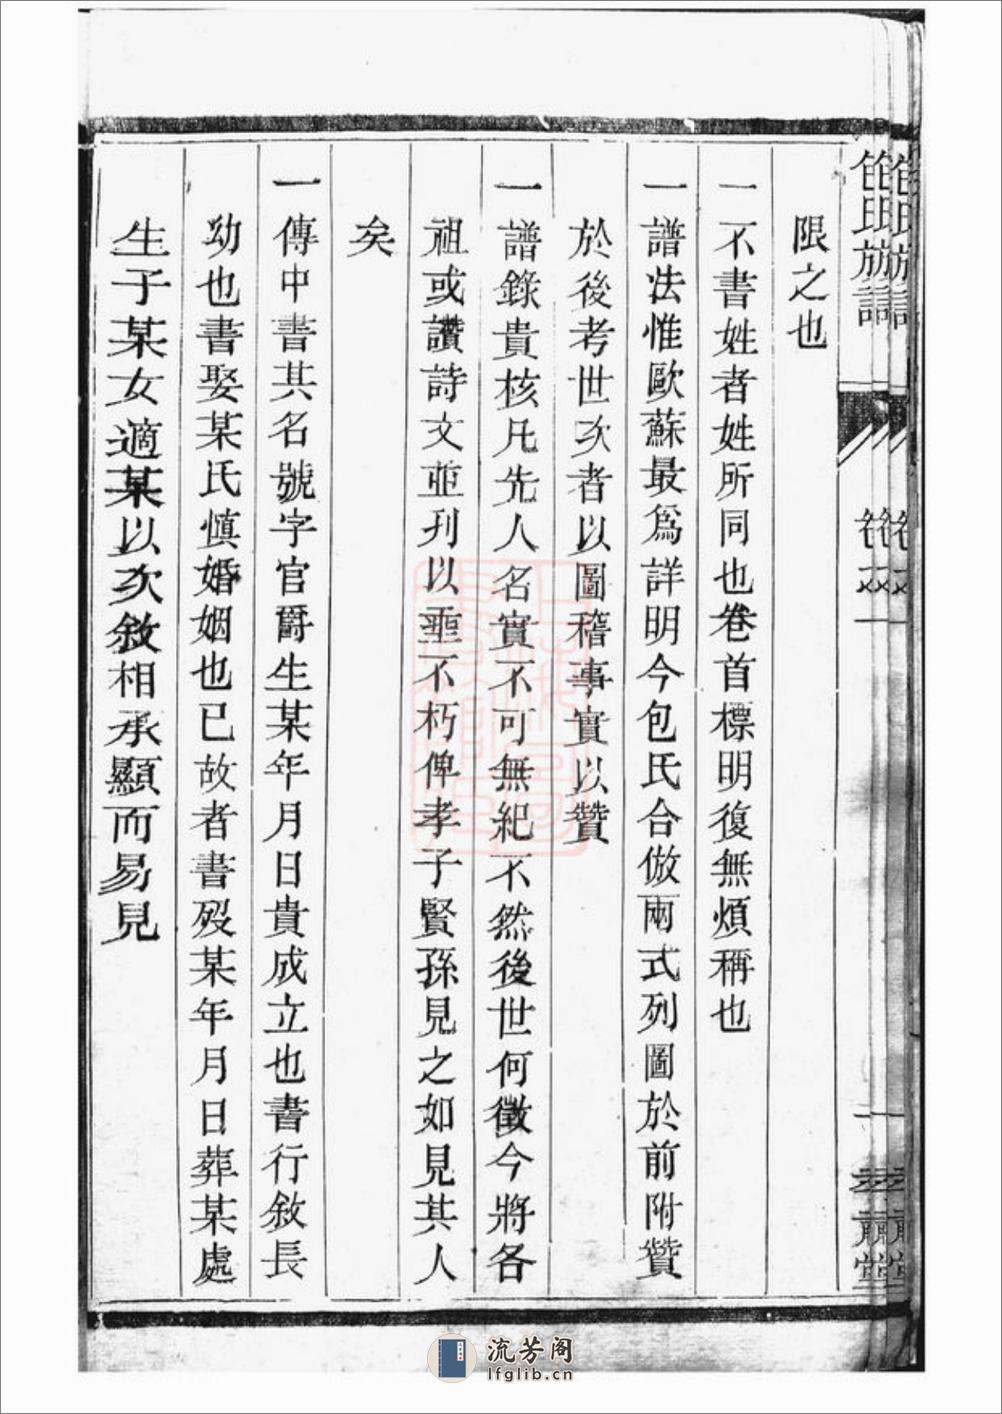 限之也
一不書姓者姓所同也卷首標明復無煩稱也
一譜法惟歐蘇最爲詳明今包氏合倣兩式列圖於前附贊
於後考世次者以圖稽事實以贊
一譜錄貴核凡先人名實不可無紀不然後世何徵今將各
祖或讚詩文並刊以垂不朽俾孝子賢孫見之如見其人
矣
一傳中書其名號字官爵生某年月日貴成立也書行敘長
幼也書娶某氏慎婚姻也已故者書歿某年月日葬某處
生子某女適某以次敘相承顯而易見
流芳阁
lfglib.cn